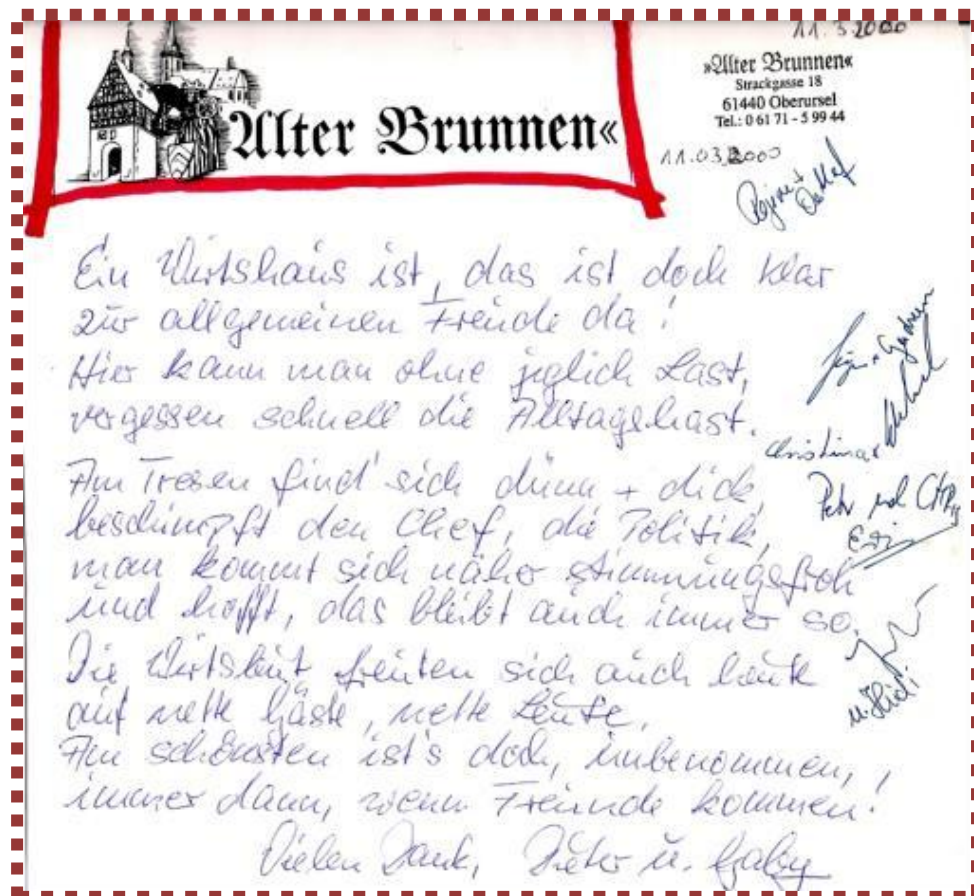 11.3.2000
»Alter Brunnen«
Strackgasse 18
61440 Oberursel
Tel.: 0 61 71 - 5 99 44
Alter Brunnen«
11.03.2000
Ein Wirtshaus ist, das ist doch klar
zur allgemeinen Freude da!
Hier kann man ohne jeglich Last,
vergessen schnell die Alltagshast.
Am Tresen find' sich dünn + dick,
beschimpft den Chef, die Politik,
man kommt sich näher stimmungsfroh
und hofft, das bleibt auch immer so.
Die Wirtsleut freuten sich auch heute
auf nette Gäste, nette Leute,
Am schönsten ist's doch, unbenommen,
immer dann, wenn Freunde kommen!
Vielen Dank, Dieter u. Gaby